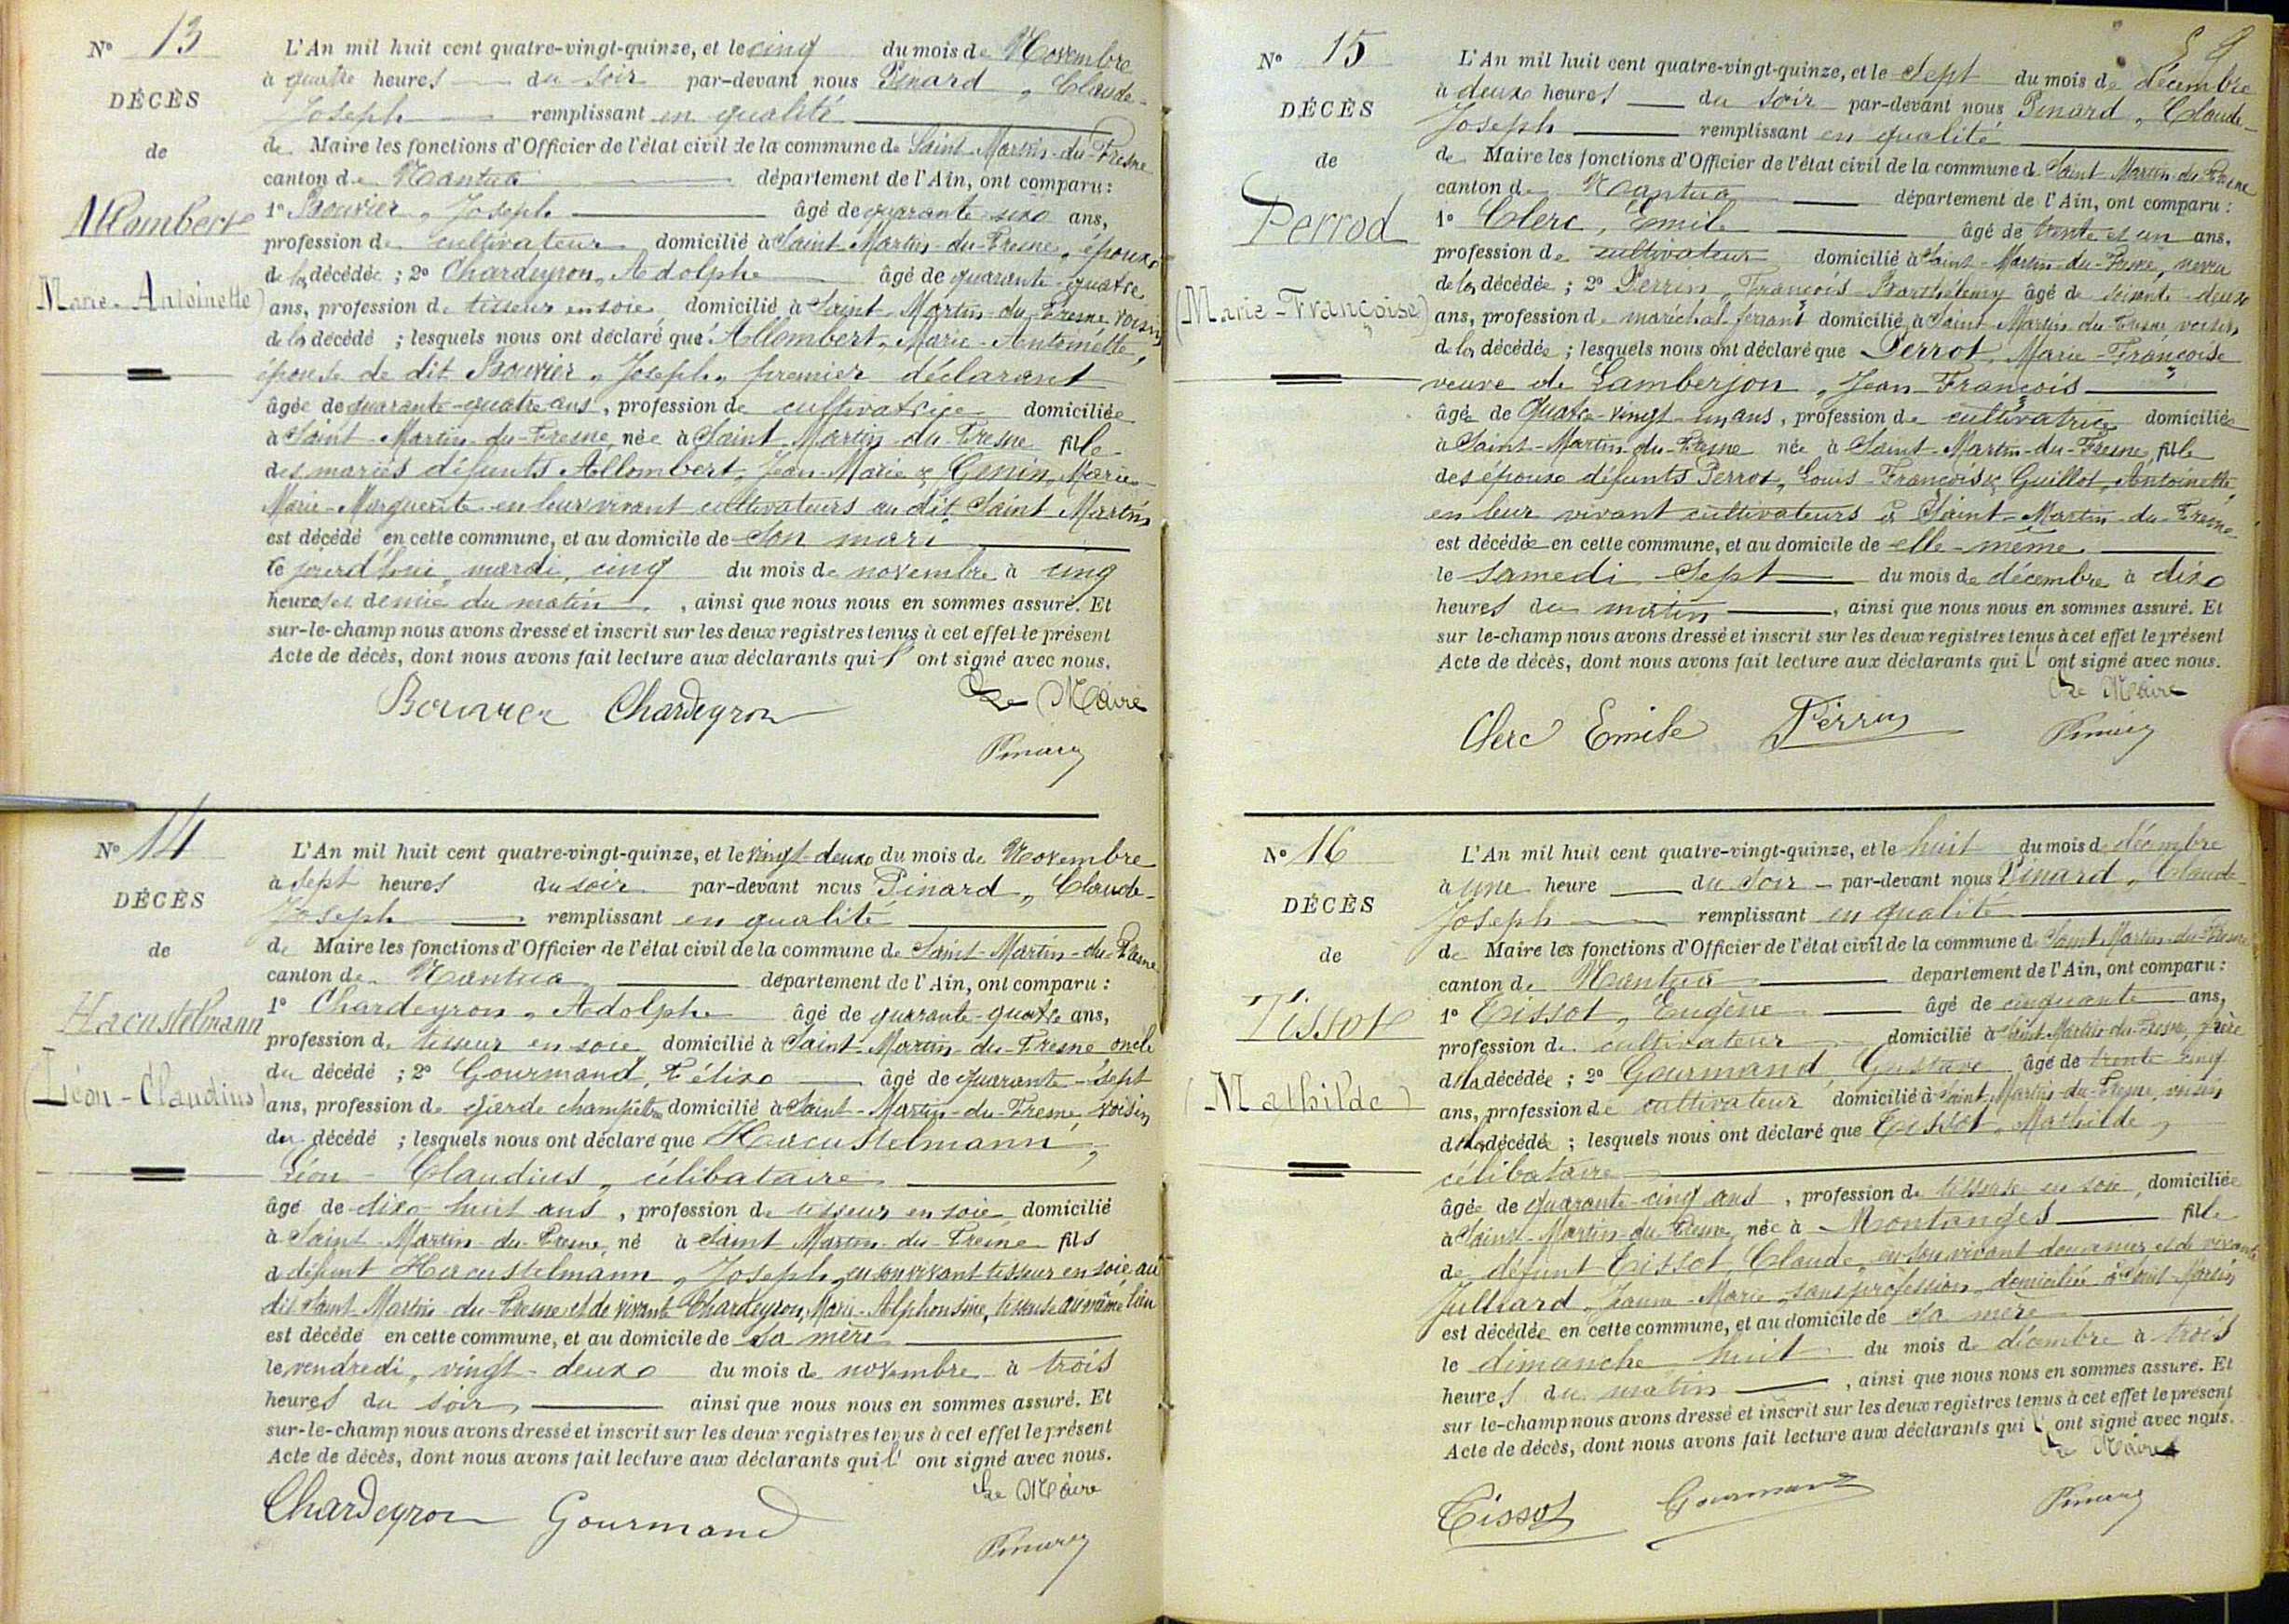 N° 13
DÉCÈS
de
Allombert
(Marie-Antoinette)
L'An mil huit cent quatre-vingt-quinze, et le cinq du mois de Novembre
à quatre heures du soir par-devant nous Pinard, Claude-
Joseph remplissant en qualité
de Maire les fonctions d'Officier de l'état civil de la commune de Saint-Martin-du-Fresne
canton de Nantua département de l'Ain, ont comparu:
1° Bouvier, Joseph âgé de quarante-six ans,
profession de cultivateur domicilié à Saint-Martin-du-Fresne, époux
de la décédée; 2° Chardeyron, Adolphe âgé de quarante-quatre
ans, profession de tisseur en soie, domicilié à Saint-Martin-du-Fresne, voisin
de la décédé; lesquels nous ont déclaré que Allombert, Marie-Antoinette,
épouse de dit Bouvier, Joseph, premier déclarant
âgée de quarante-quatre ans, profession de cultivatrice domiciliée
à Saint-Martin-du-Fresne, née à Saint-Martin-du-Fresne fille
des mariés défunts Allombert, Jean-Marie & Genin, Marie-
Marie-Marguerite en leur vivant cultivateurs au dit Saint Martin
est décédé en cette commune, et au domicile de son mari
le jourd'hui, mardi, cinq du mois de novembre à cinq
heures et demie du matin, ainsi que nous nous en sommes assuré. Et
sur-le-champ nous avons dressé et inscrit sur les deux registres tenus à cet effet le présent
Acte de décès, dont nous avons fait lecture aux déclarants qui l' ont signé avec nous.
Bouvier Chardeyron Le Maire
Pinard
N° 14
DÉCÈS
de
Hacustelmann
(Léon-Claudius)
L'An mil huit cent quatre-vingt-quinze, et le vingt-deux du mois de Novembre
à sept heures du soir par-devant nous Pinard, Claude-
Joseph remplissant en qualité
de Maire les fonctions d'Officier de l'état civil de la commune de Saint-Martin-du-Fresne
canton de Nantua département de l'Ain, ont comparu:
1° Chardeyron, Adolphe âgé de quarante-quatre ans,
profession de tisseur en soie domicilié à Saint-Martin-du-Fresne oncle
du décédé; 2° Gourmand, Félix âgé de quarante-sept
ans, profession de garde champêtre domicilié à Saint-Martin-du-Fresne, voisin
du décédé; lesquels nous ont déclaré que Hacustelmann,
Léon-Claudius, célibataire
âgé de dix-huit ans, profession de tisseur en soie domicilié
à Saint-Martin-du-Fresne, né à Saint Martin-du-Fresne fils
d défunt Hacustelmann, Joseph, en son vivant tisseur en soie, au
dit Saint-Martin-du-Fresne et de vivante Chardeyron, Marie-Alphonsine, tisseuse au même lieu
est décédé en cette commune, et au domicile de sa mère
le vendredi, vingt-deux du mois de novembre à trois
heures du soir, ainsi que nous nous en sommes assuré. Et
sur-le-champ nous avons dressé et inscrit sur les deux registres tenus à cet effet le présent
Acte de décès, dont nous avons fait lecture aux déclarants qui l' ont signé avec nous.
Le Maire
Chardeyron Gourmand
Pinard
N° 15
DÉCÈS
de
Perrod
(Marie-Françoise)
L'An mil huit cent quatre-vingt-quinze, et le sept du mois de décembre
à deux heures du soir par-devant nous Pinard, Claude-
Joseph remplissant en qualité
de Maire les fonctions d'Officier de l'état civil de la commune de Saint-Martin-du-Fresne
canton de Nantua département de l'Ain, ont comparu:
1° Clerc, Emile âgé de trente et un ans,
profession de cultivateur domicilié à Saint-Martin-du-Fresne, neveu
de la décédée; 2° Perrin, François-Barthélemy âgé de soixante-deux
ans, profession de maréchal-ferrant domicilié à Saint-Martin-du-Fresne voisin
de la décédée; lesquels nous ont déclaré que Perrot, Marie-Françoise
veuve de Lamberjon, Jean-François
âgée de Quatre-vingt-un ans, profession de cultivatrice domiciliée
à Saint-Martin-du-Fresne née à Saint-Martin-du-Fresne, fille
des époux défunts Perrot, Louis-François & Guillot, Antoinette,
en leur vivant cultivateurs à Saint-Martin-du-Fresne
est décédée en cette commune, et au domicile de elle-même
le samedi sept du mois de décembre à dix
heures du matin, ainsi que nous nous en sommes assuré. Et
sur le-champ nous avons dressé et inscrit sur les deux registres tenus à cet effet le présent
Acte de décès, dont nous avons fait lecture aux déclarants qui l' ont signé avec nous.
Le Maire
Clerc Emile Perrin Pinard
N° 16
DÉCÈS
de
Tissot
(Mathilde)
L'An mil huit cent quatre-vingt-quinze, et le huit du mois de décembre
à une heure du soir par-devant nous Pinard, Claude-
Joseph remplissant en qualité
de Maire les fonctions d'Officier de l'état civil de la commune de Saint-Martin-du-Fresne
canton de Nantua département de l'Ain, ont comparu:
1° Tissot, Eugène âgé de cinquante ans,
profession de cultivateur domicilié à Saint-Martin-du-Fresne, frère
de la décédée; 2° Gourmand, Gustave âgé de trente-cinq
ans, profession de cultivateur domicilié à Saint-Martin-du-Fresne, voisin
de la décédée; lesquels nous ont déclaré que Tissot, Mathilde,
célibataire
âgée de quarante-cinq ans, profession de tisseuse en soie, domiciliée
à Saint-Martin-du-Fresne, née à Montanges fille
de défunt Tissot, Claude, en son vivant douanier, et de vivante
Julliard, Jeanne-Marie, sans profession, domiciliée à Saint-Martin
est décédée en cette commune, et au domicile de sa mère
le dimanche huit du mois de décembre à trois
heures du matin, ainsi que nous nous en sommes assuré. Et
sur le-champ nous avons dressé et inscrit sur les deux registres tenus à cet effet le présent
Acte de décès, dont nous avons fait lecture aux déclarants qui l' ont signé avec nous.
Le Maire
Tissot Gourmand Pinard